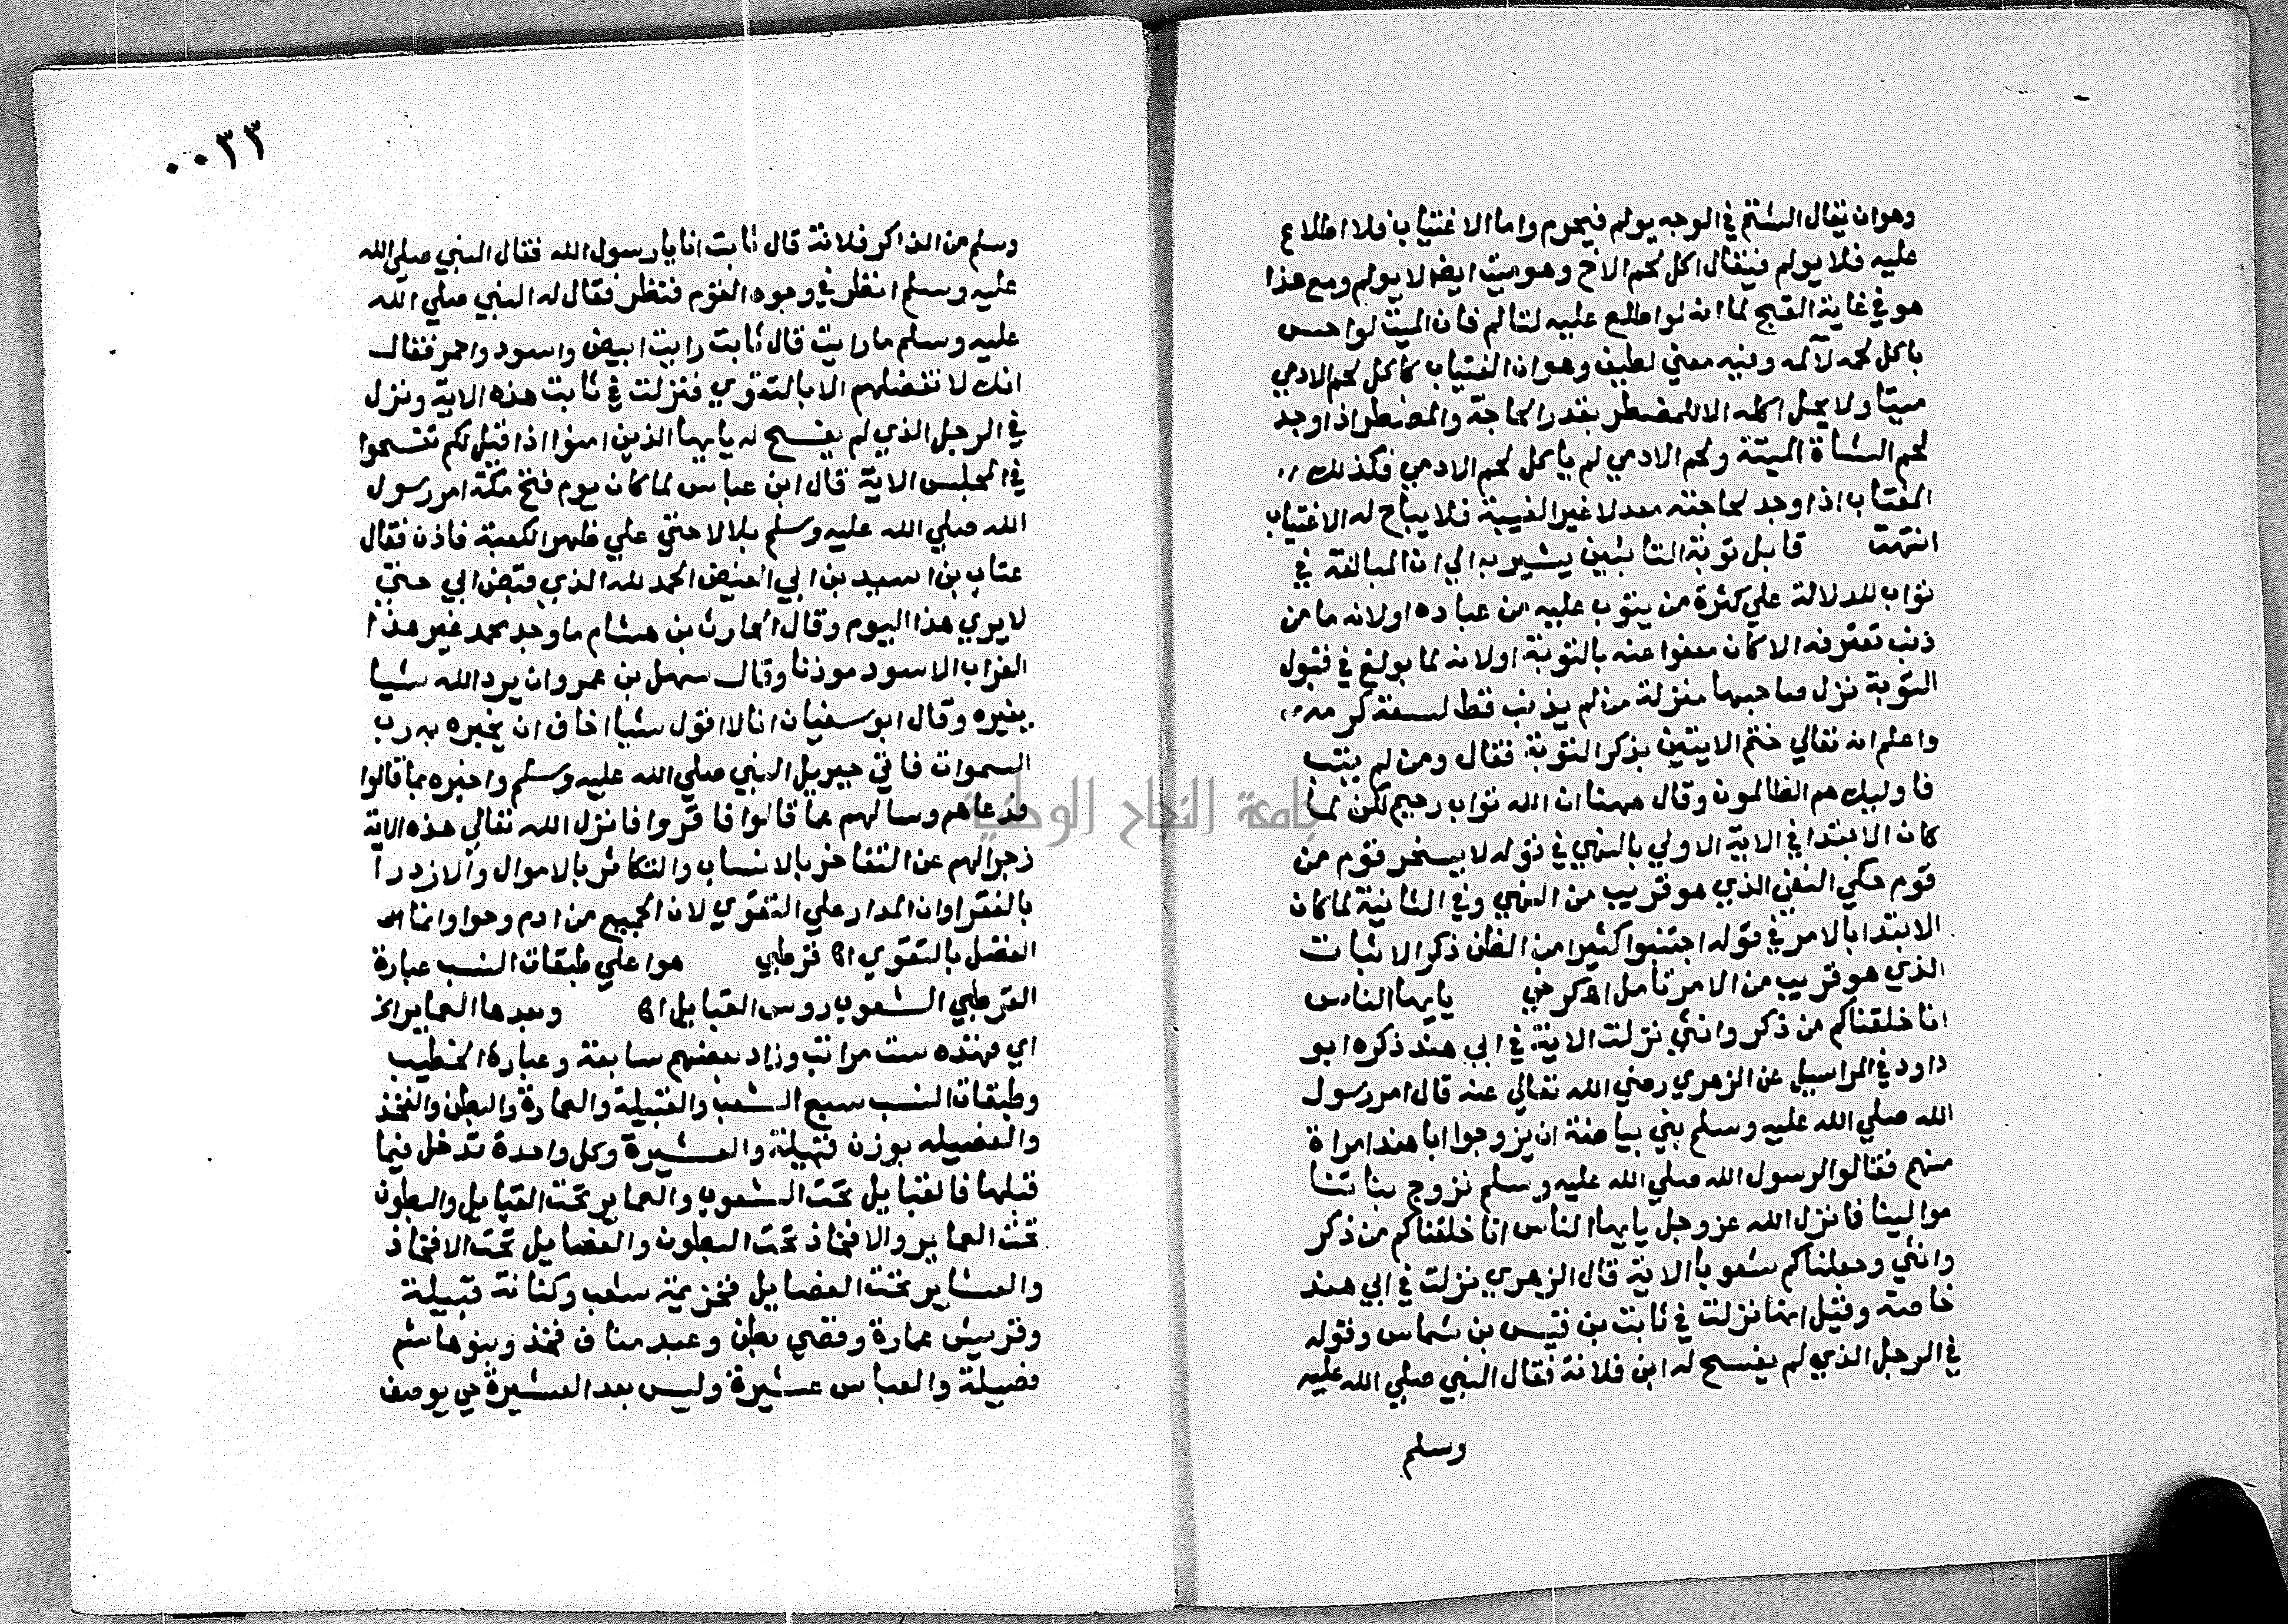 وهو ان يقال الشتم في الوجه يولم فيحرم واما الاغتياب فلا اطلاع
عليه فلا يولم فيقال اكل لحم الاخ وهو ميت ايضا لا يولم ومع هذا
هو في غاية القبح لما انه لو اطلع عليه لتالم فان الميت لو احس
باكل لحمه لآلمه وفيه معني لطيف وهو ان الغتياب كاكل لحم الادمي
ميتا ولا يحل اكله الا للمضطر بقدر الحاجة والمضطر اذا وجد
لحم الشاة الميتة ولحم الادمي لم ياكل لحم الادمي فكذلك
المغتاب اذا وجد لحاجته معدلا غير الغيبة فلا يباح له الاغتياب
انتهت قابل توبة التائبين يشير به الي ان المبالغة في
تواب للدلالة علي كثرة من يتوب عليه من عباده او لانه ما من
ذنب تقترفه الا كان معفوا عنه بالتوبة او لانه لما بولغ في قبول
التوبة نزل صاحبها منزلة من لم يذنب قط لسعة كرمه
واعلم انه تعالي ختم الايتين بذكر التوبة فقال ومن لم يتب
فاوليك هم الظالمون وقال ههنا ان الله تواب رحيم لكن لما
كان الابتدا في الاية الاولي بالنهي في قوله لا يسخر قوم من
قوم حكي النفي الذي هو قريب من النهي وفي الثانية لما كان
الابتدا بالامر في قوله اجتنبوا كثيرا من الظن ذكر الاثبات
الذي هو قريب من الامر تامل اه كرخي يايها الناس
انا خلقناكم من ذكر وانثي نزلت الاية في ابي هند ذكره ابو
داود في المراسيل عن الزهري رضي الله تعالي عنه قال امر رسول
الله صلي الله عليه وسلم بني بياضة ان يزوجوا ابا هند امراة
منهم فقالوا لرسول الله صلي الله عليه وسلم نزوج بناتنا
موالينا فانزل الله عز وجل يايها الناس انا خلقناكم من ذكر
وانثي وجعلناكم شعوبا الاية قال الزهري نزلت في ابي هند
خاصة وقيل انها نزلت في ثابت بن قيس بن شماس وقوله
في الرجل الذي لم يفسح له ابن فلانة فقال النبي صلي الله عليه
وسلم
٠٠٣٣
وسلم من الذاكر فلانة قال ثابت انا يا رسول الله فقال النبي صلي الله
عليه وسلم انظر في وجوه القوم فنظر فقال له النبي صلي الله
عليه وسلم ما رايت قال ثابت رايت ابيض واسود واحمر فقال
انك لا تفضلهم الا بالتقوي فنزلت في ثابت هذه الاية ونزل
في الرجل الذي لم يفسح له يايها الذين امنوا اذا قيل لكم تفسحوا
في المجلس الاية قال ابن عباس لما كان يوم فتح مكة امر رسول
الله صلي الله عليه وسلم بلالا حتي علي ظهر الكعبة فاذن فقال
عتاب بن اسيد بن ابي العيض الحمد لله الذي قبض ابي حتي
لا يري هذا اليوم وقال الحارث بن هشام ما وجد محمد غير هذا
الغراب الاسود موذنا وقال سهل بن عمرو ان يرد الله شيا
يغيره وقال ابو سفيان انا لا اقول شيا اخاف ان يخبره به رب
السموات فاتي جبريل النبي صلي الله عليه وسلم واخبره بما قالوا
فدعاهم وسالهم عما قالوا فاقروا فانزل الله تعالي هذه الاية
زجرا لهم عن التفاخر بالانساب والتكاثر بالاموال والازدرا
بالفقرا وان المدار علي التقوي لان الجميع من ادم وحوا وانما
الفضل بالتقوي اه قرطبي هو اعلي طبقات النسب عبارة
القرطبي الشعوب روس القبايل اه وبعدها العماير الخ
اي فهذه ست مراتب وزاد بعضهم سابعة وعبارة الخطيب
وطبقات النسب سبع الشعب والقبيلة والعمارة والبطن والفخذ
والفضيله بوزن قبيلة والعشيرة وكل واحدة تدخل فيما
قبلها فالقبايل تحت الشعوب والعماير تحت القبايل والبطون
تحت العماير والافخاذ تحت البطون والفضايل تحت الافخاذ
والعشاير تحت الفضايل فخزيمة شعب وكنانة قبيلة
وقريش عمارة وقصي بطن وعبد مناف فخذ وبنو هاشم
فضيلة والعباس عشيرة وليس بعد العشيرة حي يوصف
جامعة النجاح الوطنية